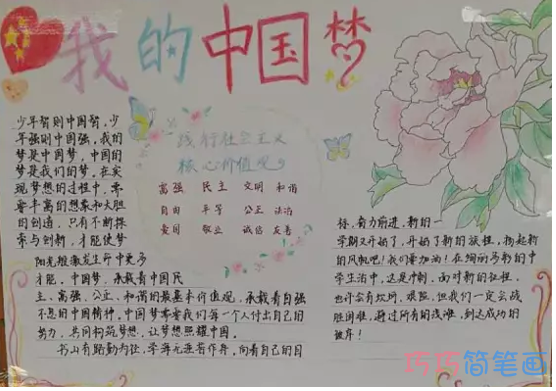 我的中国梦
少年智则中国智，少
年强则中国强，我们
梦是中国梦，中国的
梦是我们的梦，在实
现梦想的过程中，需
要丰富的想象和大胆
的创造，只有不断探
索与创新，才能使梦
才能，中国梦，承载着中国民
主、富强、公正、和谐的最基本价值观，承载着自强
不息的中国精神，中国梦需要我们每个人付出自己的
努力，共同构筑梦想，让梦想照耀中国。
书山有路勤为径，学海无涯苦作舟，向着自己的目
践行社会主义
核心价值观
富强 民主 文明 和谐
自由 平等 公正 法治
爱国 敬业 诚信 友善
标，奋力前进，新的一
学期又开始了，开始了新的旅程，扬起新
的风帆吧！我们要加油！在绚丽多彩的中
学生活中，这是冲刺，面对新的征程，
也许会有坎坷，艰险，但我们一定会战
胜困难，通过所有的浅滩，到达成功的
彼岸！
巧巧简笔画